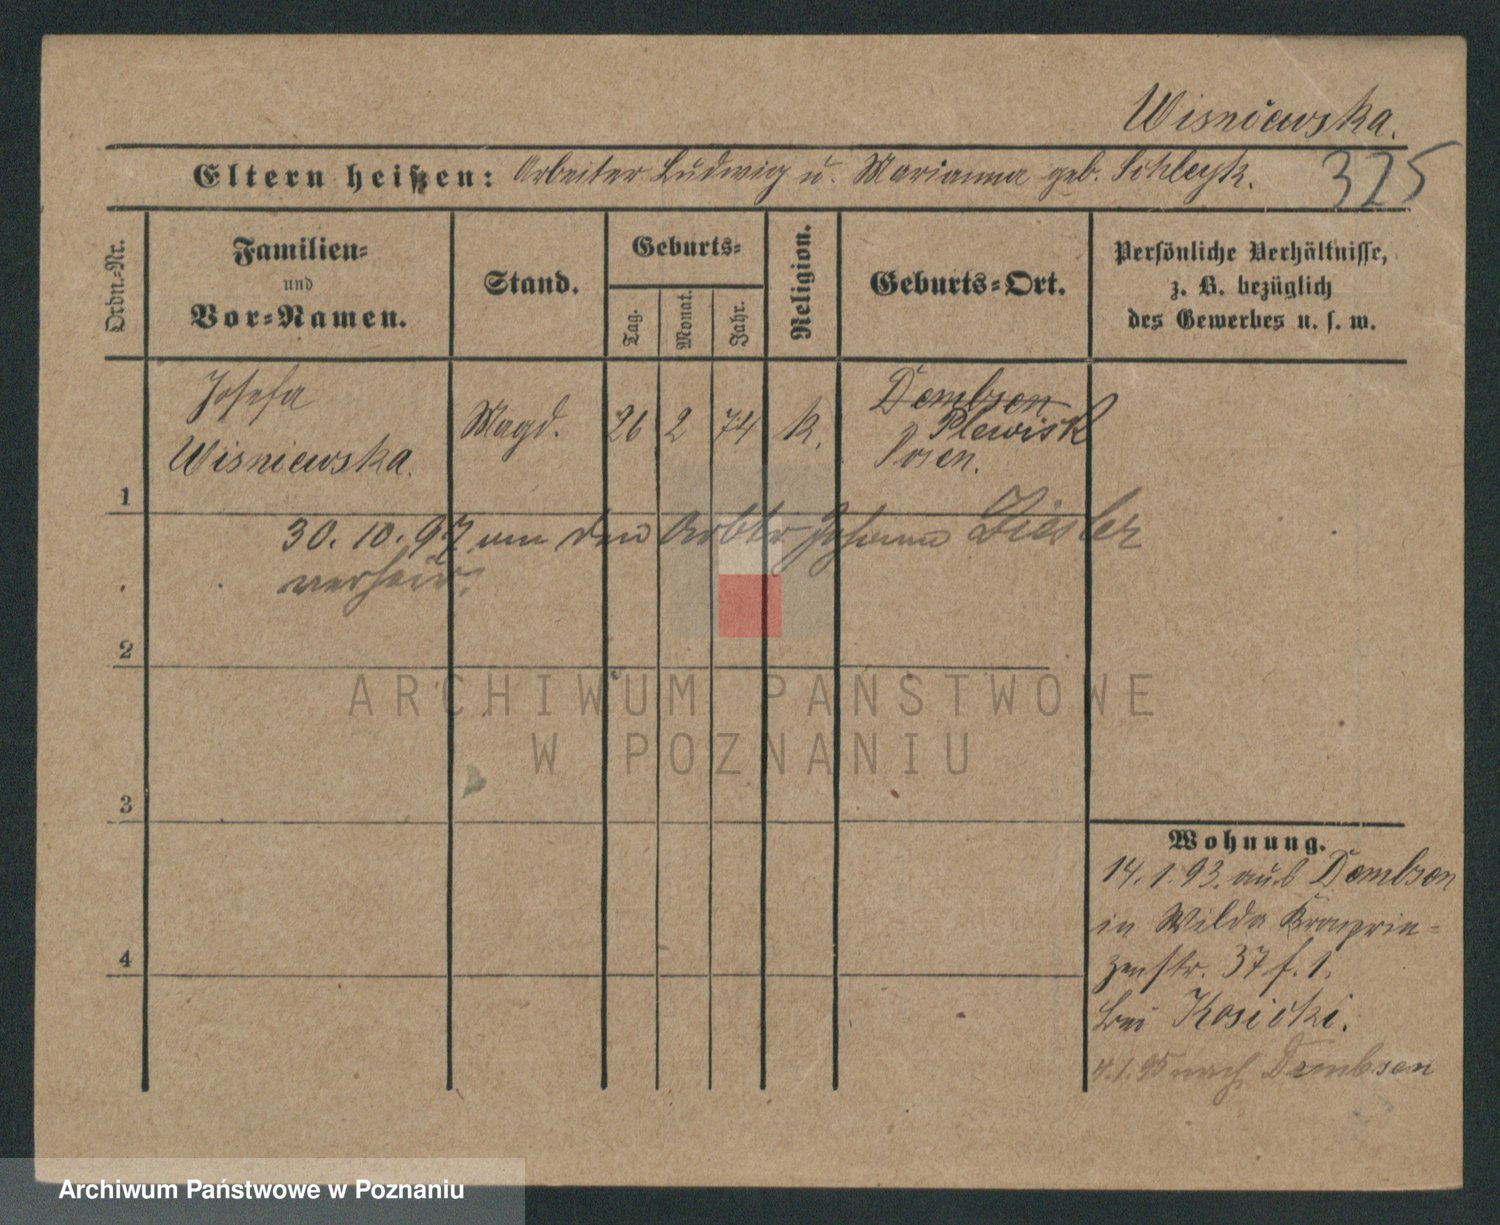 Wisniewska.
325
Eltern heißen: Arbeiter Ludwig u. Marianna geb. Schleyk.
Ordn.-Nr.
Familien-
und
Vor-Namen.
Stand.
Geburts-
Tag.
Monat.
Jahr.
Religion.
Geburts-Ort.
Persönliche Verhältnisse,
z. B. bezüglich
des Gewerbes u. s. w.
1
Josefa
Wisniewska.
Magd.
26
2
74
k.
Dembsen
Plewisk
Posen.
30. 10. 97 um den Arbtr Johann Ziesler
verheir.
2
3
4
Wohnung.
14. 1. 93. aus Dembsen
in Wilda Kronprin-
zenstr. 37 f. 1.
bei Kosicki.
4. 1. 95 nach Dembsen
ARCHIWUM PAŃSTWOWE
W POZNANIU
Archiwum Państwowe w Poznaniu